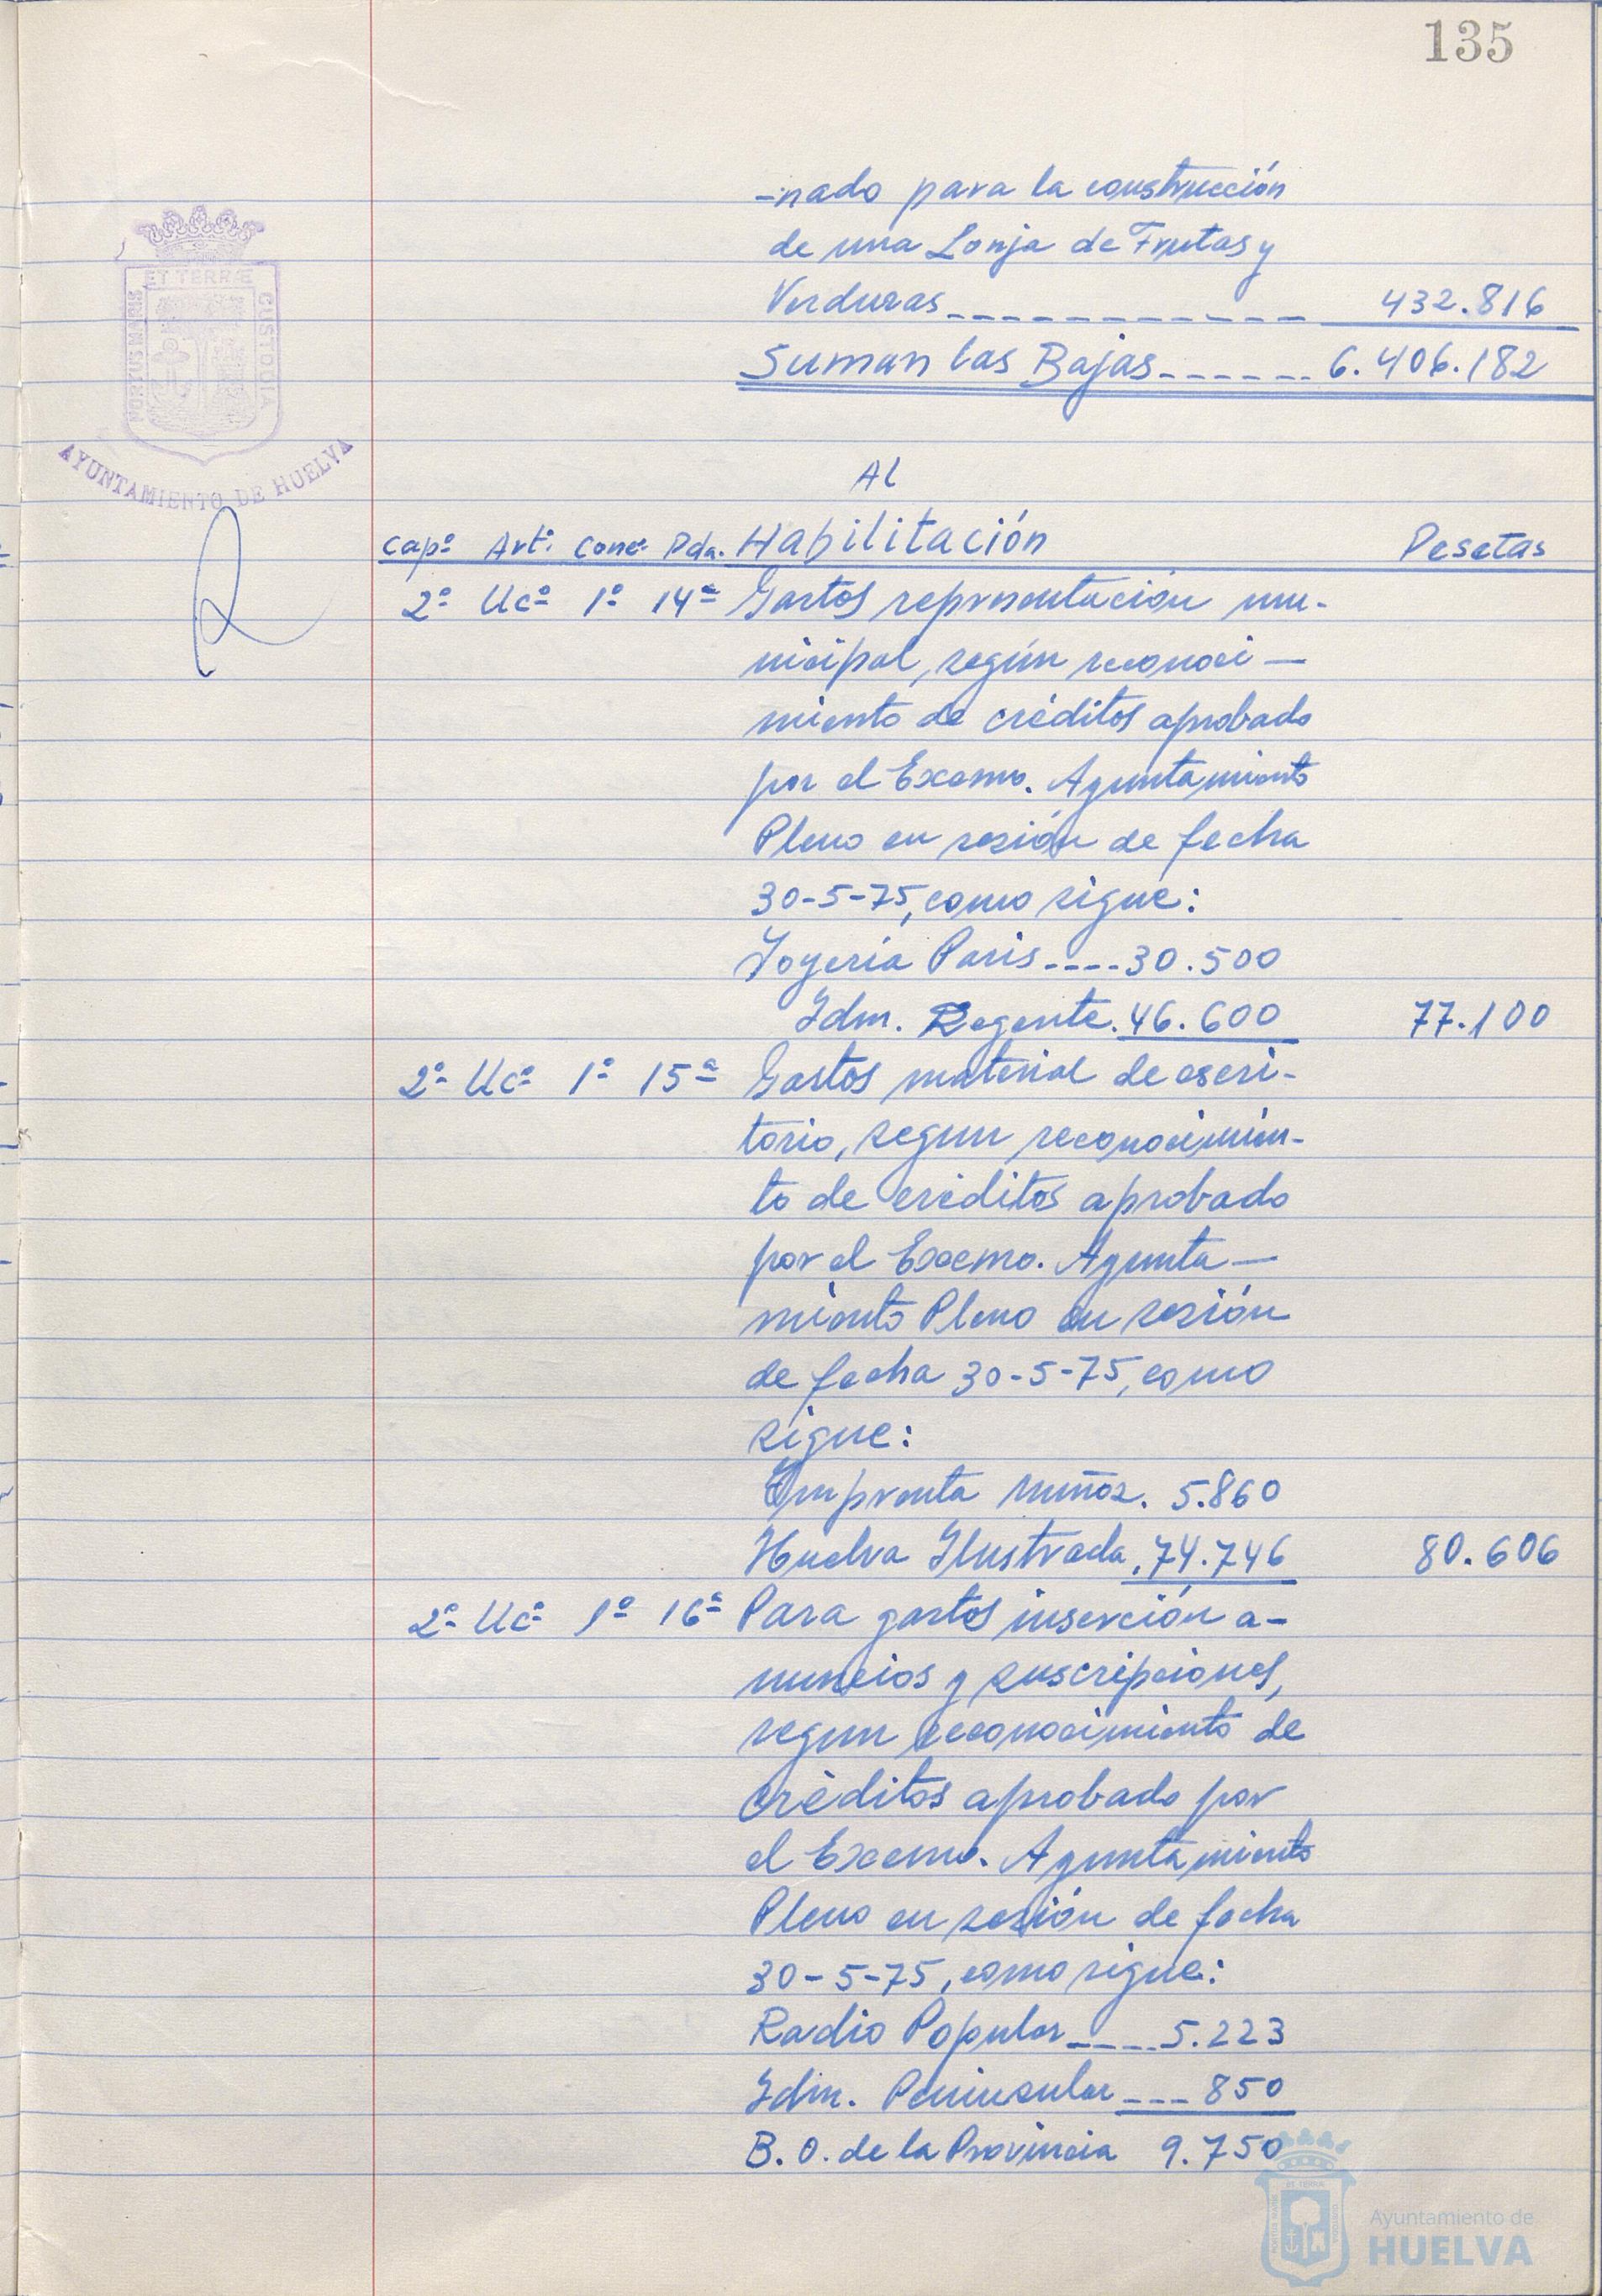 135
-nado para la construcción
de una Lonja de Frutas y
Verduras____________ 432.816
Suman las Bajas______ 6.406.182
ET TERRÆ
PORTUS MARIS
CUSTODIA
AYUNTAMIENTO DE HUELVA
Al
Capº Artº. Concº Pda. Habilitación Pesetas
2º Ucº 1º 14ª Gastos representación mu-
nicipal, según reconoci-
miento de créditos aprobado
por el Excmo. Ayuntamiento
Pleno en sesión de fecha
30-5-75, como sigue:
Joyería Paris----30.500
Idm. Regente. 46.600 77.100
2º Ucº 1º 15ª Gastos material de escri-
torio, segun reconocimien-
to de créditos aprobado
por el Excmo. Ayunta-
miento Pleno en sesión
de fecha 30-5-75, como
sigue:
Imprenta Muñoz. 5.860
Huelva Ilustrada. 74.746 80.606
2º Ucº 1º 16ª Para gastos inserción a-
nuncios y suscripciones,
segun reconocimiento de
crèditos aprobado por
el Excmo. Ayuntamiento
Pleno en sesión de fecha
30-5-75, como sigue:
Radio Popular____5.223
Idm. Peninsular___850
B. O. de la Provincia 9.750
Ayuntamiento de
HUELVA